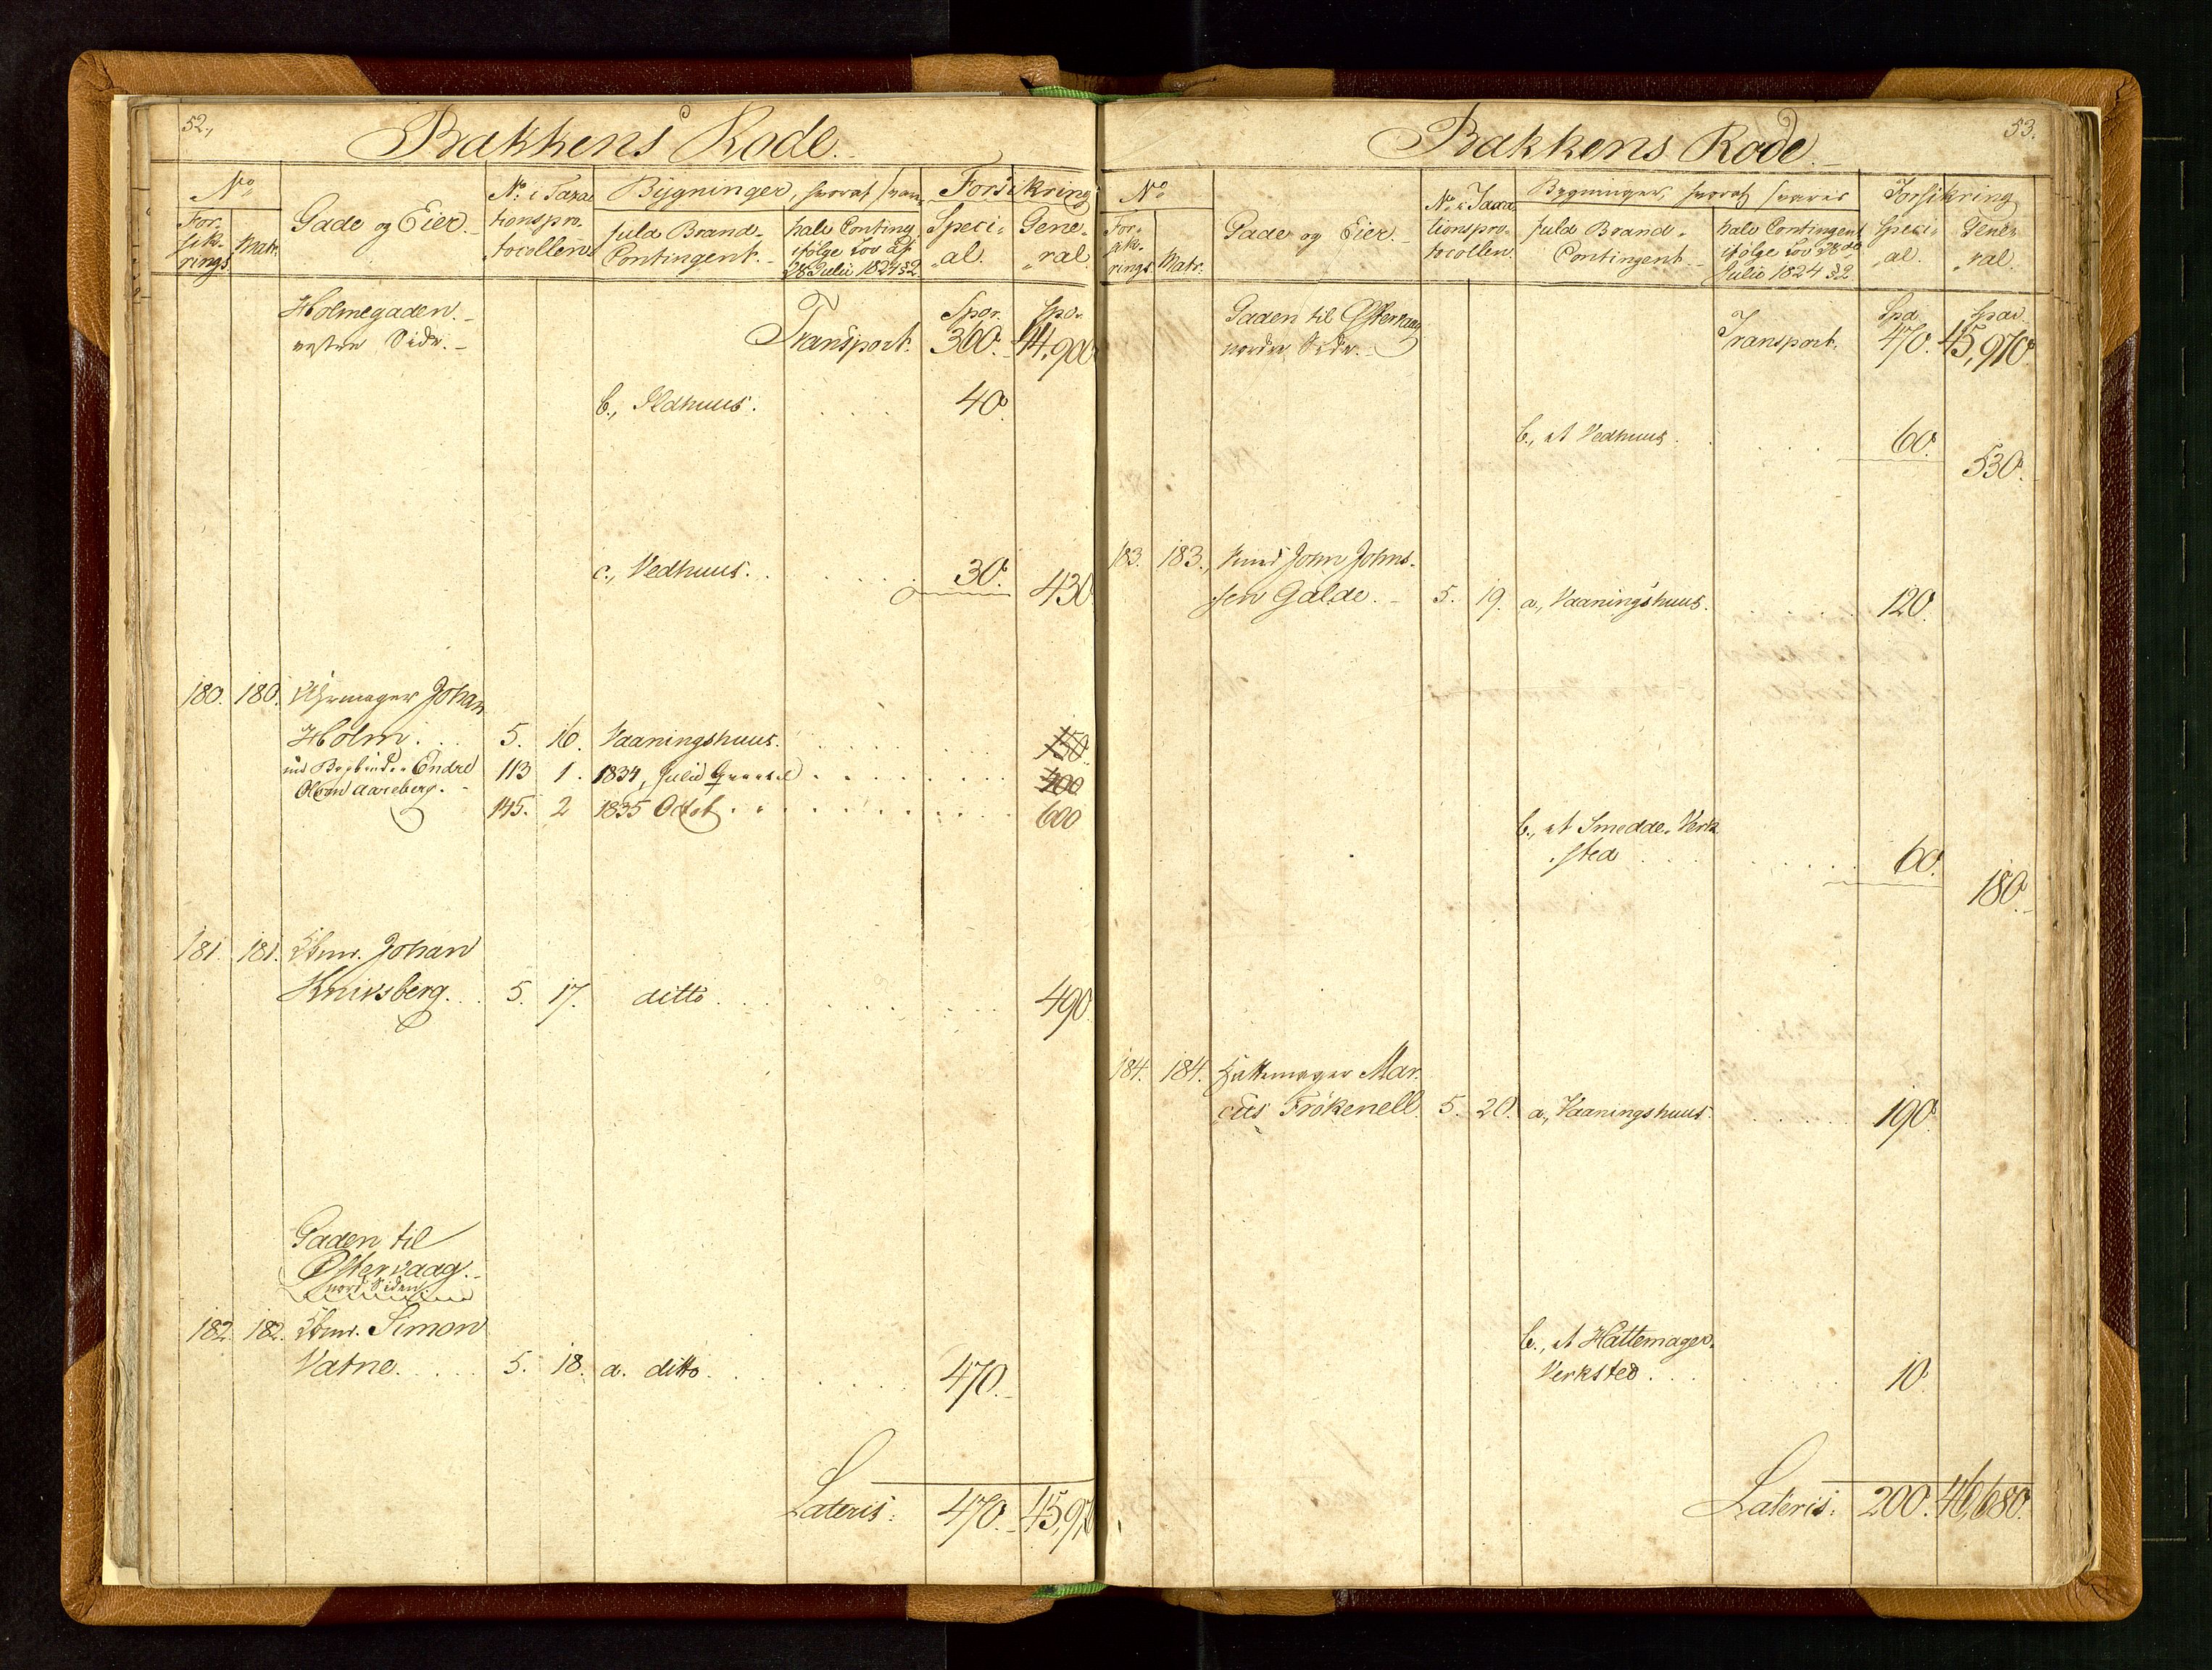 52.,
Bakkens Rode.
No
Forsikrings
Matr.
Gade og Eier.
No i Taxationsprotocollen
Bygninger, hvoraf svares
fuld Brand-Contingent.
halv Conting. ifølge Lov af 28 Julii 1824 §2
Forsikring
Speci-al.
Gene-ral
Holmegaden.
vestre Side.
Transport.
Spdr. 360.
Spdr. 44,900
b., Ildhuus. 40.
c., Vedhuus. 30. 430.
180. 180. Uhrmager Johan
Holm. 5. 16. Vaaningshuus. 150.
nu Bogbinder Endre 113 1. 1834, Julii Qvartal 400
Olsen Aareberg. 145. 2 1835 Octob. 600
181. 181. Johan
Knivsberg. 5. 17. ditto 490.
Gaden til
Østervaag.
nord Siden.
182. 182. Simon
Vatne. 5. 18. a. ditto. 470.
Lateris: 470. 45,970
53.
Bakkens Rode.
No
Forsikrings
Matr.
Gade og Eier.
No i Taxationsprotocollen.
Bygninger, hvoraf svares
fuld Brand-Contingent
halv Contingent ifølge Lov 28de Julio 1824 §2
Forsikring
Speci-al.
Gene-ral.
Gaden til Østervaag
nordre Side.
Transport.
Spd. 470.
Spdr. 45,970.
b., et Vedhuus. 60. 530.
183. 183. John Johns-
sen Galde. 5. 19. a., Vaaningshuus. 120.
b., et Smedde-Verk
sted 60. 180.
184. 184. Hattemager Mar-
cus Frökenell. 5. 20. a., Vaaningshuus. 190.
b., et Hattemager-
Verksted. 10.
Lateris: 200. 46,680.